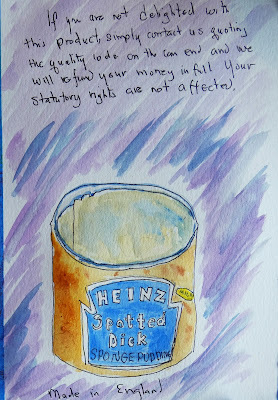 If you are not delighted with
this product, simply contact us quoting
the quality code on the can end and we
will refund your money in full. Your
statutory rights are not affected.
HEINZ
Spotted
Dick
SPONGE PUDDING
Made in England